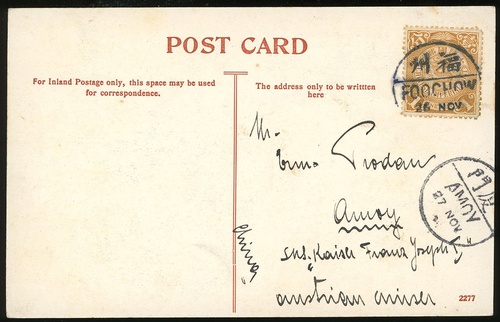 POST CARD
For Inland Postage only, this space may be used
for correspondence.
The address only to be writtten
here
福州
FOOCHOW
26 NOV
Mr.
Prodan
Amoy
China
S.M.S. "Kaiser Franz Joseph I"
austrian cruiser
廈門
AMOY
27 NOV
2277